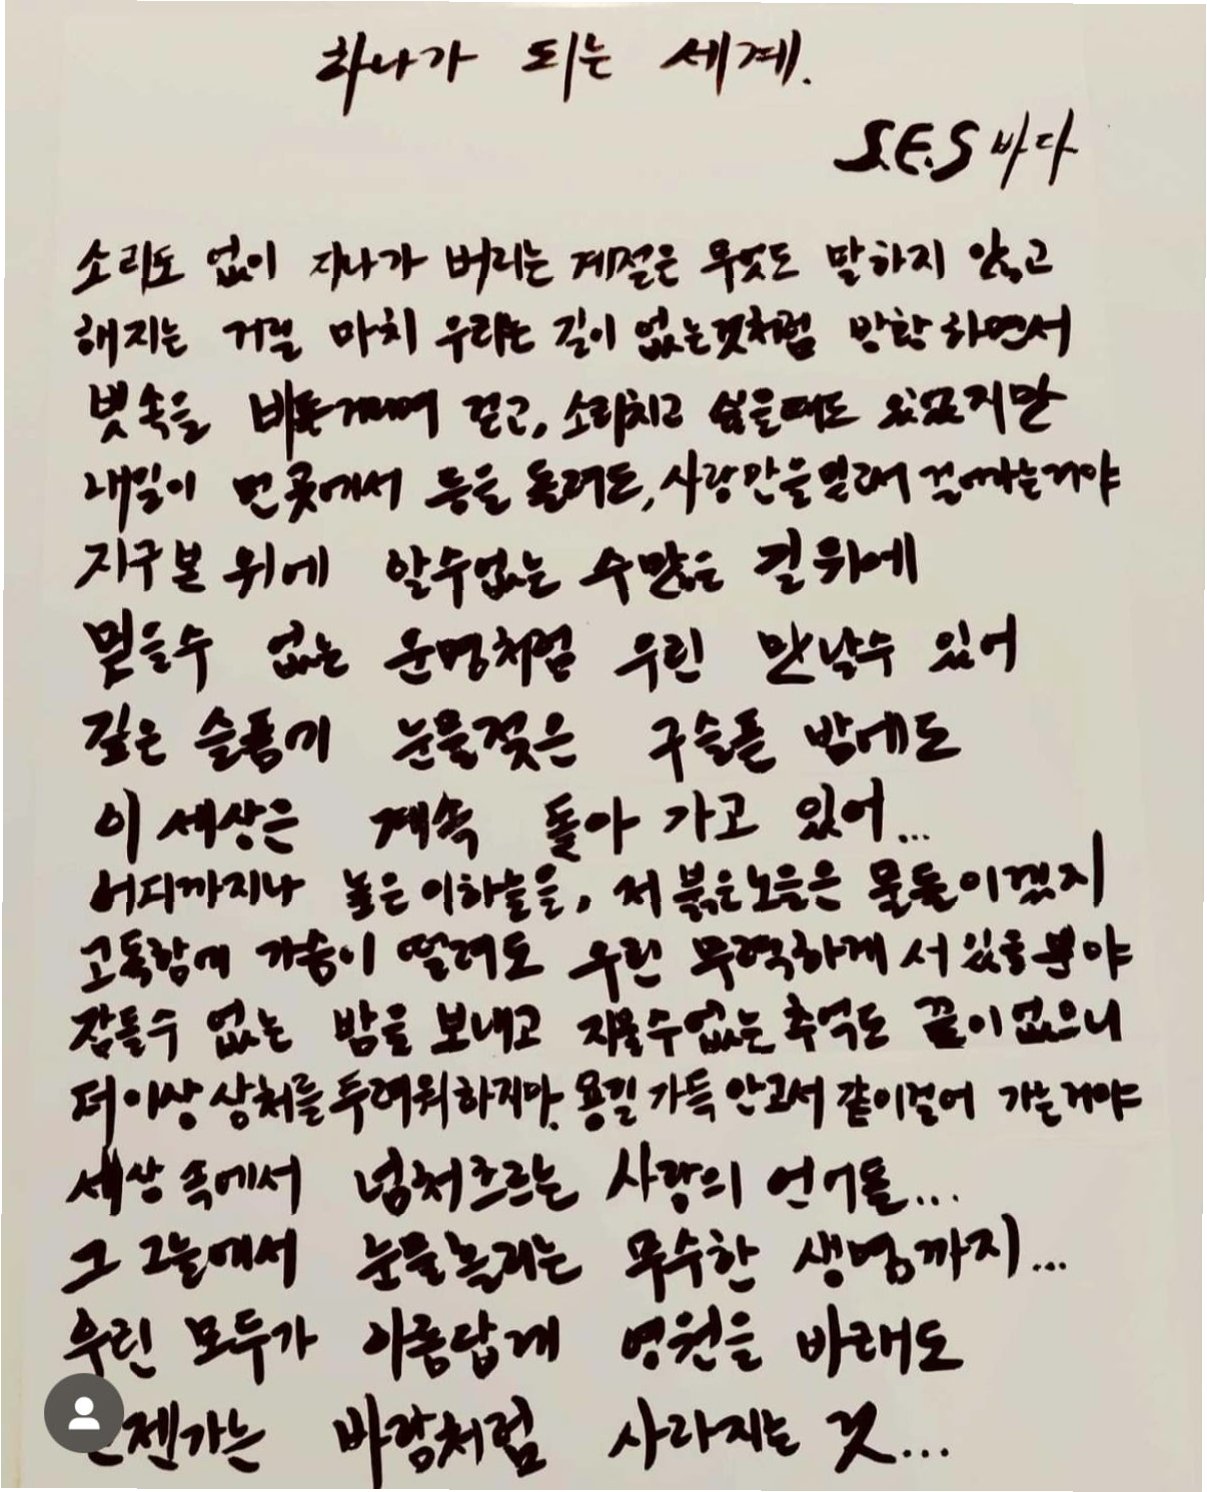 하나가 되는 세계.
S.E.S 바다
소리도 없이 지나가 버리는 계절은 무엇도 말하지 않고
해지는 거릴 마치 우리는 길이 없는것처럼 방황하면서
빗속을 비틀거리며 걷고, 소리치고 싶을때도 있었지만
내일이 먼 곳에서 등을 돌려도, 사랑만을 믿고서 걸어가는거야
지구본 위에 알수없는 수많은 길위에
믿을수 없는 운명처럼 우린 만날수 있어
깊은 슬픔에 눈물젖은 구슬픈 밤에도
이 세상은 계속 돌아 가고 있어...
어디까지나 높은 이하늘을, 저 붉은노을은 물들이겠지
고독함에 가슴이 떨려도 우린 무력하게 서 있을뿐야
잠들수 없는 밤을 보내고 지울수없는 추억도 끝이없으니
더이상 상처를 두려워하지마. 용길 가득 안고서 같이걸어 가는거야
세상 속에서 넘쳐흐르는 사랑의 언어들...
그 그늘에서 눈물흘리는 무수한 생명까지...
우린 모두가 아름답게 영원을 바래도
언젠가는 바람처럼 사라지는 것...